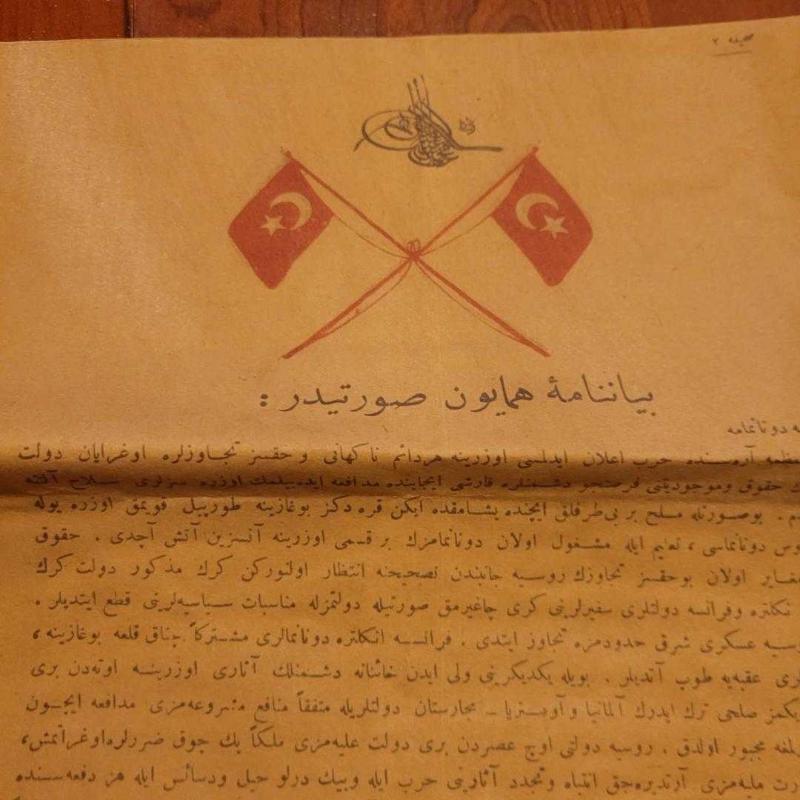 صحیفه ٢
بیاننامهٔ همایون صورتیدر :
دونانمامه
معظمه آره‌سنده حرب اعلان ایدلمسی اوزرینه هردائم ناکهانی و حقسز تجاوزلره اوغرایان دولت
حقوق وموجودیتنی فرصتجو دشمنلره قارشی ایجابنده مدافعه ایده‌بیلمك اوزره سزلری سلاح آلتنه
بوصورتله مسلح بر بی‌طرفلق ایچنده یشامقده ایکن قره دکز بوغازینه طورپیل قویمق اوزره یوله
روس دونانماسی ، تعلیم ایله مشغول اولان دونانمامزك بر قسمی اوزرینه آنسزین آتش آچدی . حقوق
مغایر اولان بوحقسز تجاوزك روسیه جانبندن تصحیحنه انتظار اولنورکن کرك مذکور دولت کرك
انکلتره وفرانسه دولتلری سفیرلرینی کری چاغیرمق صورتیله دولتمزله مناسبات سیاسیه‌لرینی قطع ایتدیلر .
روسیه عسکری شرق حدودمزه تجاوز ایتدی . فرانسه انکلتره دونانمالری مشترکاً چناق قلعه بوغازینه ،
عقبه‌یه طوپ آتدیلر . بویله یکدیکرینی ولی ایدن خائنانه دشمنلك آثاری اوزرینه اوته‌دن بری
صلحی ترك ایدرك آلمانیا و آوستریا - مجارستان دولتلریله متفقاً منافع مشروعه‌مزی مدافعه ایچون
مجبور اولدق . روسیه دولتی اوچ عصردن بری دولت علیه‌مزی ملکاً پك چوق ضررلره اوغراتمش ،
ملیه‌مزی آرتدیره‌جق انتباه وتجدد آثارینی حرب ایله وبیك درلو حیل ودسائس ایله هر دفعه‌سنده